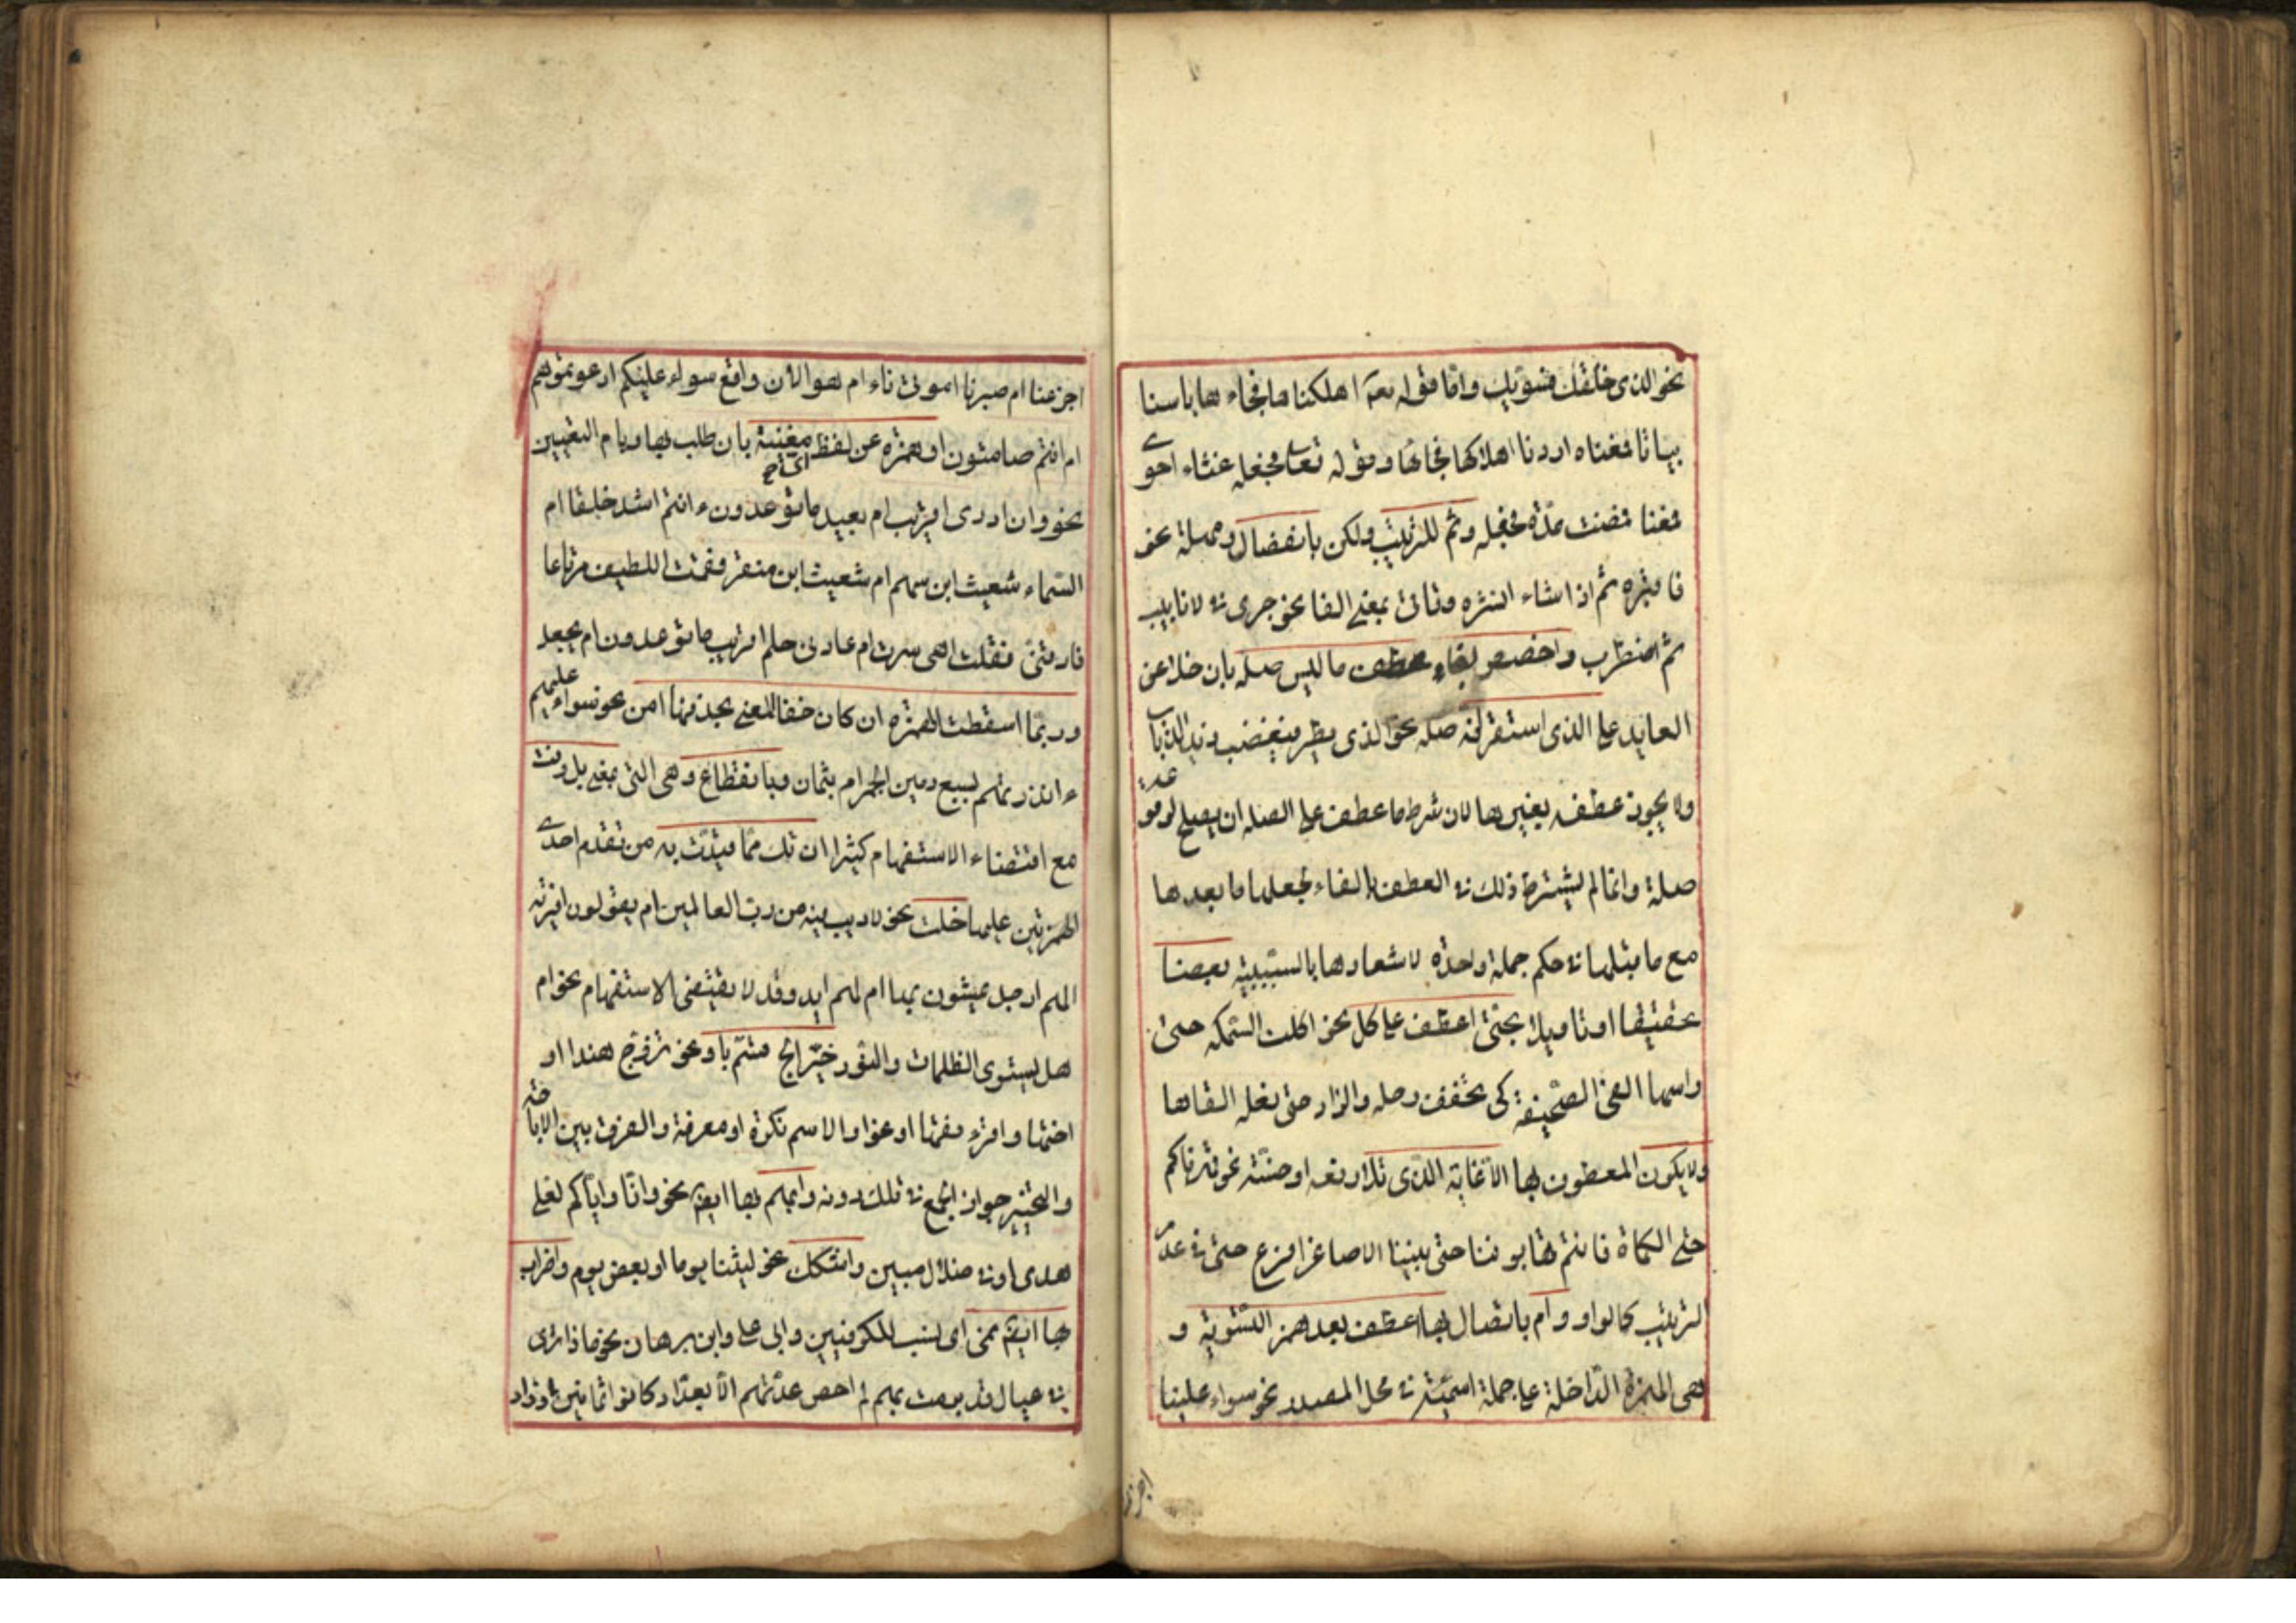 نحو الذى خلقك فسويك واما قوله تعه اهلكناها فجاءها باسنا
بياتا فمعناه اردنا اهلاكها فجائها وقوله تعالى فجعله غثاء احوى
فمعنا فمضت مدة فجعله وثم للترتيب ولكن بانفصال ومهملة نحو
فاقبره ثم اذا شاء انشره وتاتى بمعنى الفا نحو جرى فى الانابيب
ثم اضطرب واخصص بفاء عطف ما ليس صله بان خلا عن
العايد على الذى استقر انه صله نحو الذى يطير فيغضب زيد الذباب
ولا يجوز عطفه بغيرها لان شرط ما عطف على الصله ان يصلح لوقوعه
صلة وانما لم يشترط ذلك فى العطف بالفاء لجعلها ما بعدها
مع ما قبلها فى حكم جملة واحدة لاشعارها بالسببية بعضا
تحقيقا او تاويلا بحتى اعطف على كل نحو اكلت السمكه حتى
راسها القى الصحيفة كى يخفف رحله والزاد حتى نعله القاها
ولا يكون المعطوف بها الا غاية الذى تلا رفعه او خسته نحو قهرناكم
حتى الكماة فانتم تهابوننا حتى بنينا الاصاغرا فرع حتى فى عدم
الترتيب كالواو وام باتصال بها اعطف بعد همز التسوية و
هى الهمزة الداخلة على جملة اسمية فى محل المصدر نحو سواء علينا
اجزعنا
اجزعنا ام صبرنا اموتى ناء ام هو الان واقع سواء عليكم ادعوتموهم
ام انتم صامتون او همزة عن لفظ اى مغنية بان طلب بها وبام التعيين
نحو وان ادرى اقريب ام بعيد ما توعدون ءانتم اشد خلقا ام
السماء شعيث ابن سهم ام شعيث ابن منقر فقمت للطيف مرتاعا
فارقنى فقلت اهى سرت ام عادنى حلم اقريب ما توعدون ام يجعل
وربما اسقطت الهمزة ان كان خفا المعنى بحذفها امن نحو سواء عليهم
ءانذرتهم بسبع رمين الجمر ام بثمان وبانقطاع وهى التى بمعنى بل وفت
مع اقتضاء الاستفهام كثيرا ان تك مما قيدت به من تقدم احدى
الهمزتين عليها خلت نحو لا ريب فيه من رب العالمين ام يقولون افتريه
الهم ارجل يمشون بها ام لهم ايد وقد لا يقتضى الاستفهام نحو ام
هل يستوى الظلمات والنور خير ابح قسم باو نحو تزوج هندا او
اختها واقرء فقها او نحوا والاسم نكرة او معرفة والفرق بين الاباحة
والتخيير جواز الجمع فى تلك دونه وابهم بها ايض نحو وانا واياكم لعلى
هدى او فى ضلال مبين واشكك نحو لبثنا يوما او بعض يوم واضراب
بها ايض نمى اى نسب للكوفيين وابى على وابن برهان نحو ماذا ترى
فى عيال قد برمت بهم لم احص عدتهم الا بعداد كانوا ثمانين او زاد